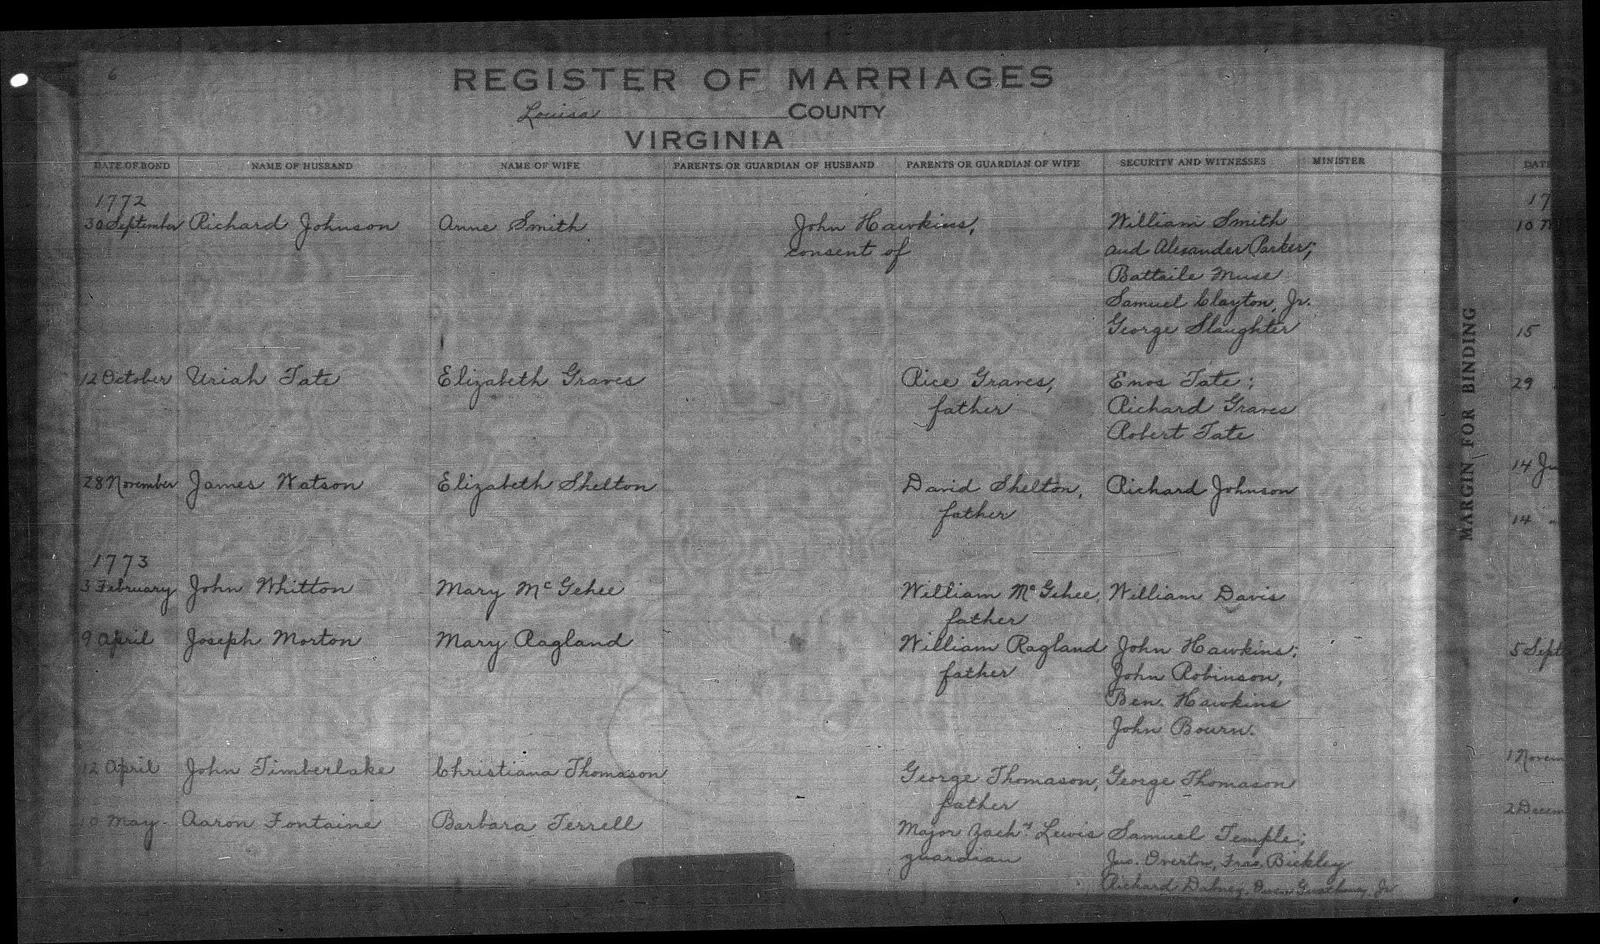 6
REGISTER OF MARRIAGES
Louisa COUNTY
VIRGINIA
DATE OF BOND NAME OF HUSBAND NAME OF WIFE PARENTS OR GUARDIAN OF HUSBAND PARENTS OR GUARDIAN OF WIFE SECURITY AND WITNESSES MINISTER
1772
30 September Richard Johnson Anne Smith John Hawkins, William Smith
consent of and Alexander Parker;
Battaile Muse
Samuel Clayton, Jr.
George Slaughter
12 October Uriah Tate Elizabeth Graves Rice Graves, Enos Tate;
father Richard Graves
Robert Tate
28 November James Watson Elizabeth Shelton David Shelton, Richard Johnson
father
1773
3 February John Whitton Mary McGehee William McGehee, William Davis
father
9 April Joseph Morton Mary Ragland William Ragland John Hawkins;
father John Robinson,
Ben. Hawkins
John Bourn.
12 April John Timberlake Christiana Thomason George Thomason, George Thomason
father
10 May Aaron Fontaine Barbara Terrell Major Zachy Lewis Samuel Temple;
guardian Jno. Overton, Fras. Bickley
Richard Dabney, Jr
MARGIN FOR BINDING
DATE
17
10
15
29
14 Ju
14 "
5 Sept
1 Novem
2 Decem